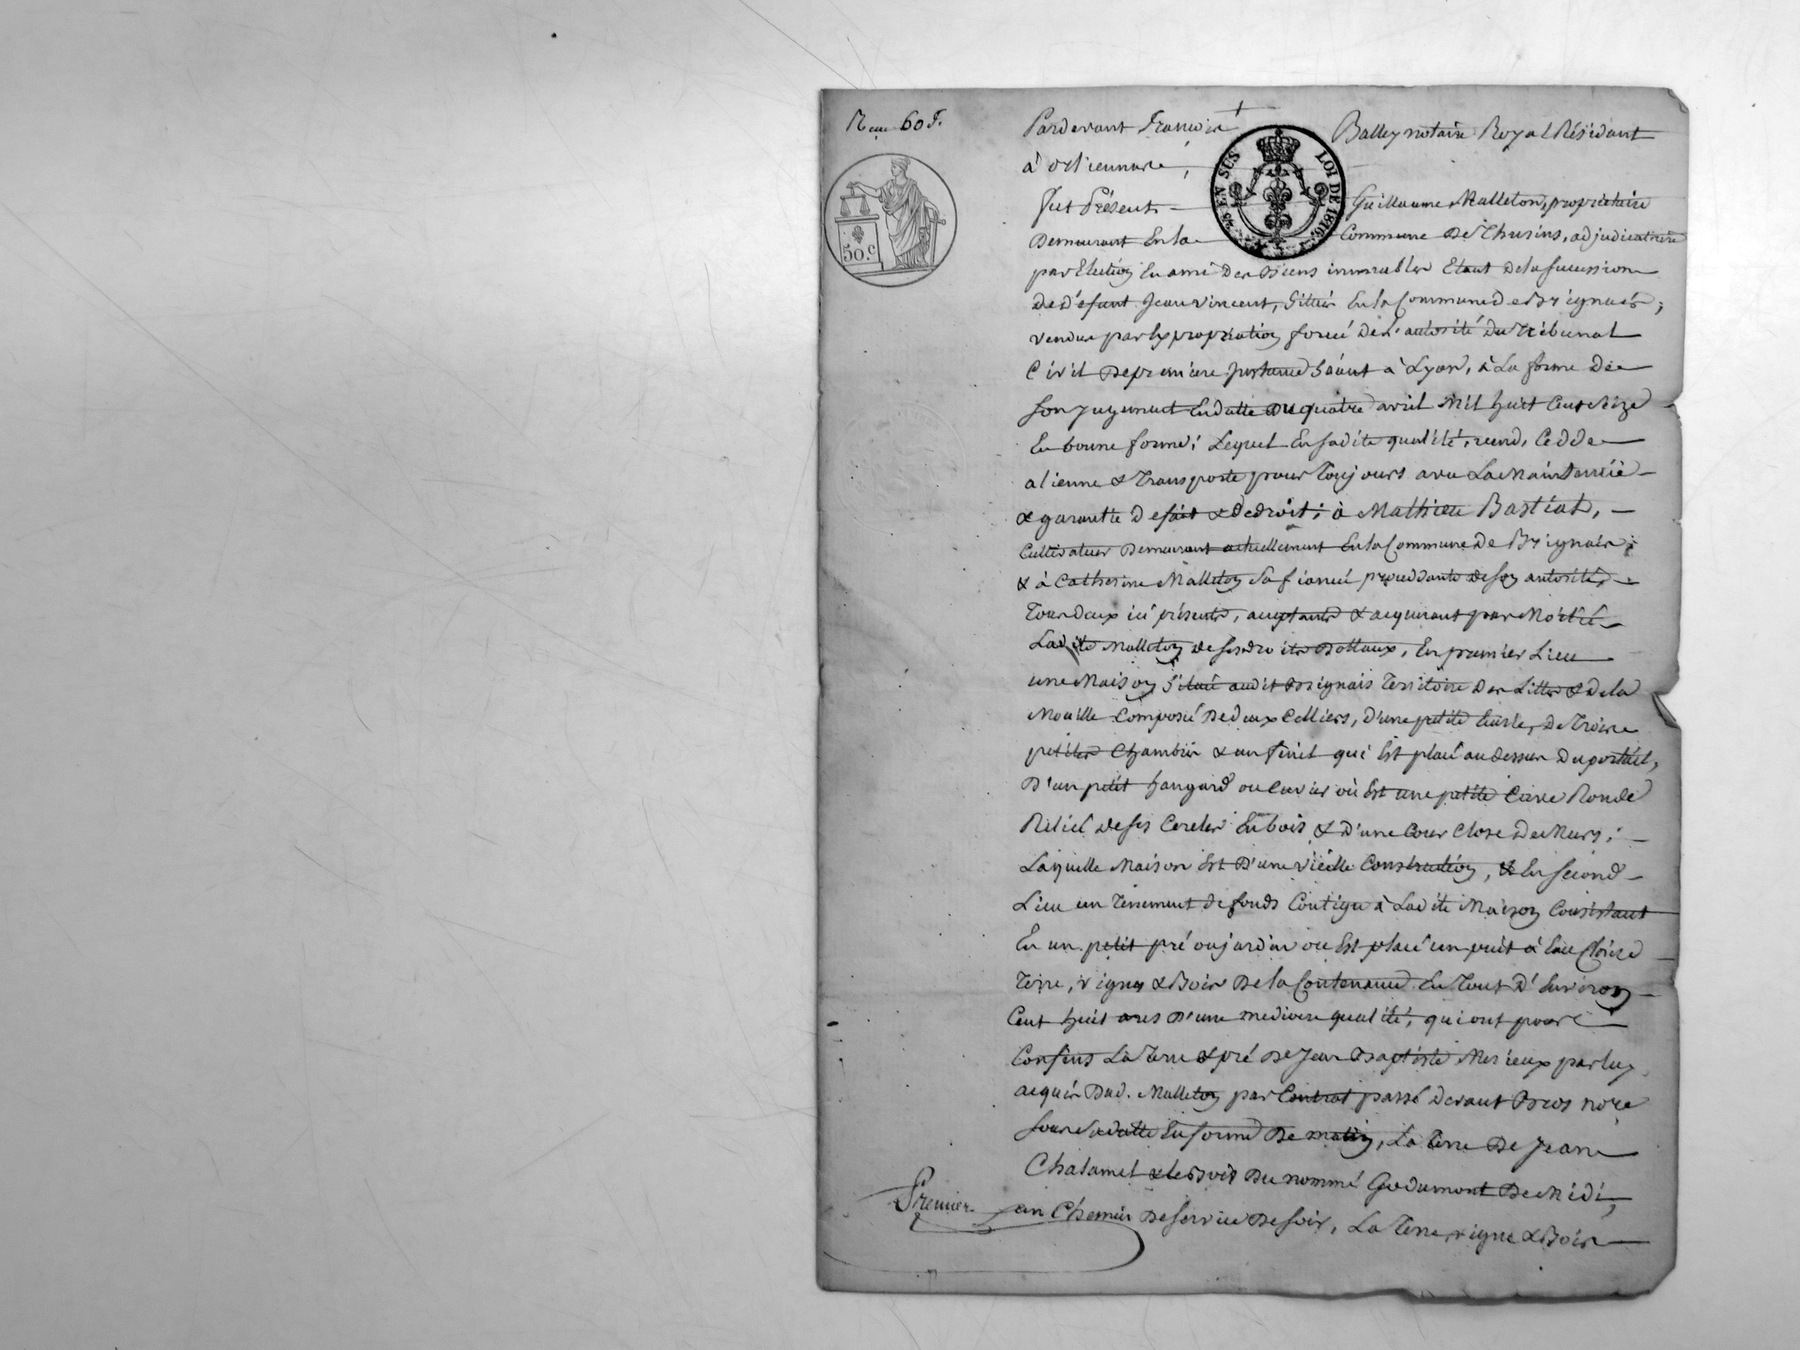 60 F.
Pardevant François Balley notaire Royal Résidant
à orliennare,
50.c
¼ EN SUS LOI DE 1816.
Fut Présent Guillaume Malleton, propriétaire
Demeurant En la Commune De Thusins, adjudicataire
par Election En ami Des Biens immeubles Etant de la succession
de défunt Jean Vincent, Situés En la Commune de Brignais;
vendus par Expropriation forcé de l'autorité du Tribunal
Civil De première Instance Séant à Lyon, à La forme De
son jugement En datte Du quatre avril Mil huit Cent Seize
En bonne forme; Lequel En sadite qualité, vend, Cedde
alienne & Transporte pour Toujours avec La Maintenüe
& garantie De fait & de droit; à Mathieu Bastiat,
Cultivateur Demeurant actuellement En la Commune De Brignais;
& à Catherine Malleton Sa fiancée proceddante de son autorité,
Tous Deux ici présents, acceptants & acquerant par Moitié
Ladite Malleton de ses droits Dottaux, En premier Lieu
une Maison Située audit Brignais Territoire Des Littes & de la
Mouille Composée De deux Celliers, d'une petite Ecurie, De Trois
petites Chambres & un Fenil qui Est placé au dessus Du portail,
D'un petit hangard ou Cuvier où Est une petite Cuve Ronde
Reliée de ses Cercles En bois & D'une Cour Close De Murs;
Laquelle Maison Est D'une vieille Construction, & En second
Lieu un Tenement de fonds Contigu à Ladite Maison Consistant
En un petit pré ou jardin ou Est placé un puit à Eau Claire
Terre, vignes & Bois De la Contenance En Tout D'Environ
Cent huit ares D'une mediocre qualité, qui ont pour
Confins La Terre & pré De Jean Baptiste Merieux par luy
acquis Dud. Malleton par Contrat passé Devant Bros nore
sous Sa datte En forme De matin, La Terre De Jean
Chalamel & le Bois Du nommé Gudumont De Midi,
un Chemin De service De soir, La Terre, vigne & Bois
Premier